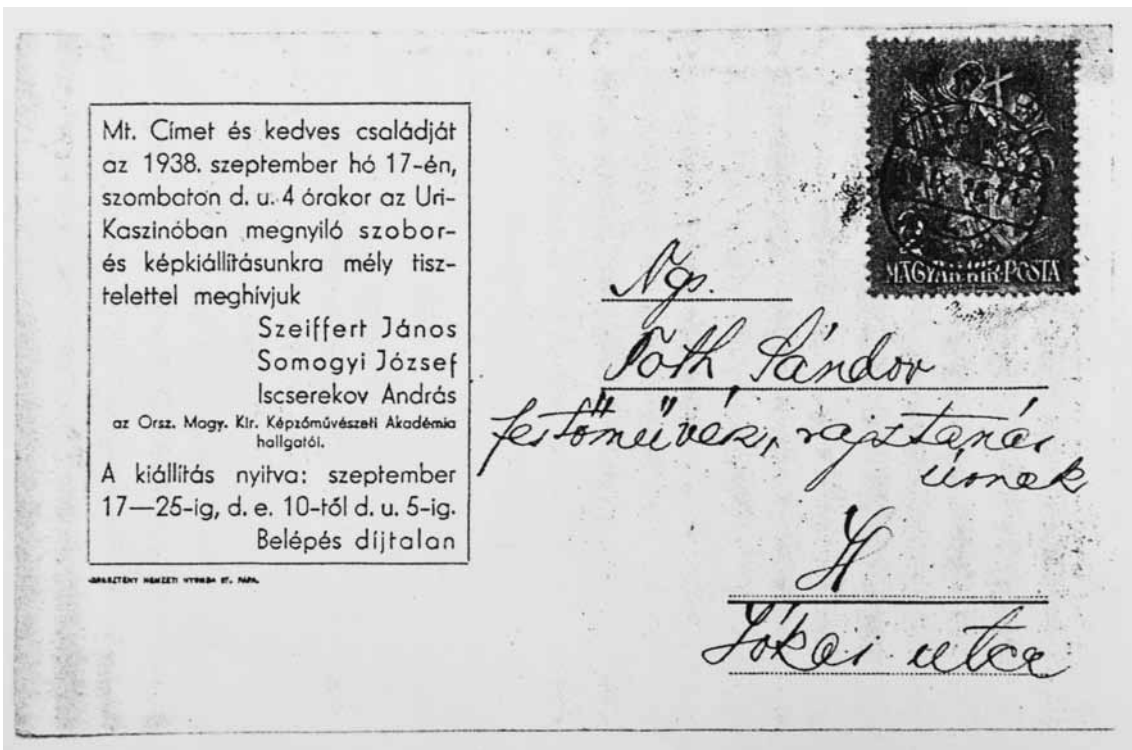 Mt. Címet és kedves családját
az 1938. szeptember hó 17-én,
szombaton d. u. 4 órakor az Uri-
Kaszinóban megnyiló szobor-
és képkiállításunkra mély tisz-
telettel meghívjuk
Szeiffert János
Somogyi József
Iscserekov András
az Orsz. Magy. Kir. Képzőművészeti Akadémia
hallgatói.
A kiállítás nyitva: szeptember
17—25-ig, d. e. 10-től d. u. 5-ig.
Belépés díjtalan
NEMZETI NYOMDA PÁPA.
MAGYAR KIR POSTA
Ngs.
Tóth Sándor
festőművész, rajztanár
úrnak
Jókai utca